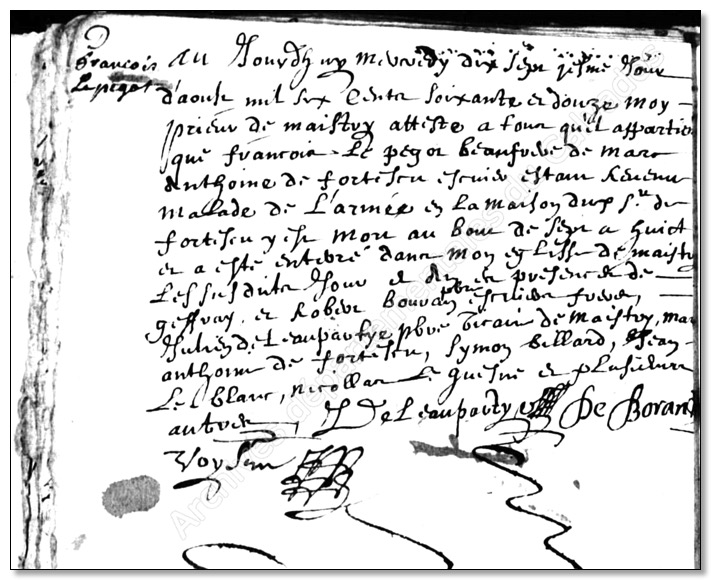 François
Le pegot
Au Jourdhuy mecredy dix sept jesme Jour
d'aoust mil six Cents soixante et douze moy
prieur de maistry atteste a tous qu'il appartien
que françois Le pegot beaufrere de Marc
Anthoine de fortescu escuier estant Revenu
Malade de L'armée en La maison dud sr. de
fortescu y est Mort au bout de sept a huict
et a esté enterré dans mon eglisse de maistry
Les susdits Jour et an en presence de
geffray et Robert Bouran escuier frere,
Julien de Leauparty pbre vicair de maistry, marc
anthoine de fortescu, Symon billard, Jean
Le blanc, nicollas Le quesne et plusieurs
autres J DeLeauparty De Boran
Voysin